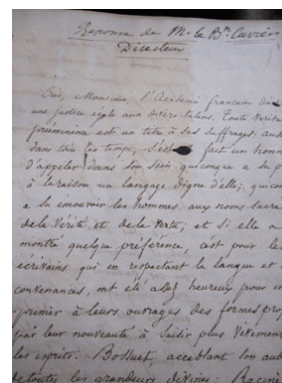 Reponse de Mr. le Bon. Cuvier
Directeur
Oui, Monsieur, l'Academie francaise
une justice egale aux divers talens. Toute veritable
est un titre à ses suffrages,
dans tous les tems, fait un honneur
d'appeler dans son sein quiconque a su
à la raison un langage digne d'elle,
a su emouvoir les hommes aux noms
de la Verité et de la Vertu; et si elle a
montré quelque préference, cest pour les
écrivains qui en respectant la langue et
convenances, ont été assez heureux pour
primer à leurs ouvrages des formes
par leur nouveauté à saisir plus
les esprits. Bossuet, accablant son
de toutes les grandeurs divines. Racine